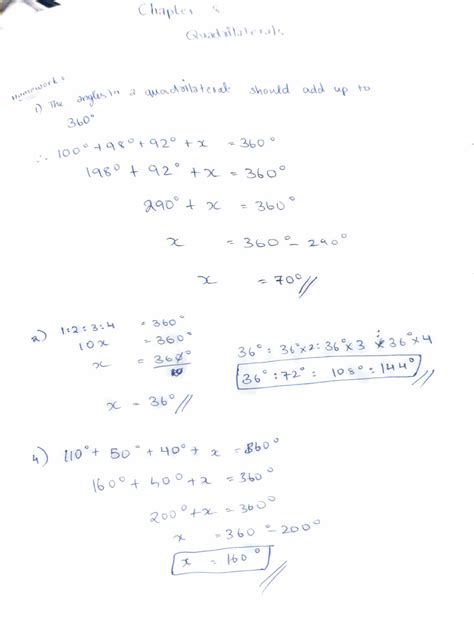 Chapter 8
Quadrilaterals
Homework:
1) The angles in a quadrilateral should add up to
360°
∴ 100° + 98° + 92° + x = 360°
198° + 92° + x = 360°
290° + x = 360°
x = 360° - 290°
x = 70° //
2) 1:2:3:4 = 360°
10x = 360°
x = 360°
10
x = 36° //
36° : 36°×2 : 36°×3 : 36°×4
36° : 72° : 108° : 144°
4) 110° + 50° + 40° + x = 360°
160° + 40° + x = 360°
200° + x = 360°
x = 360 - 200°
x = 160°